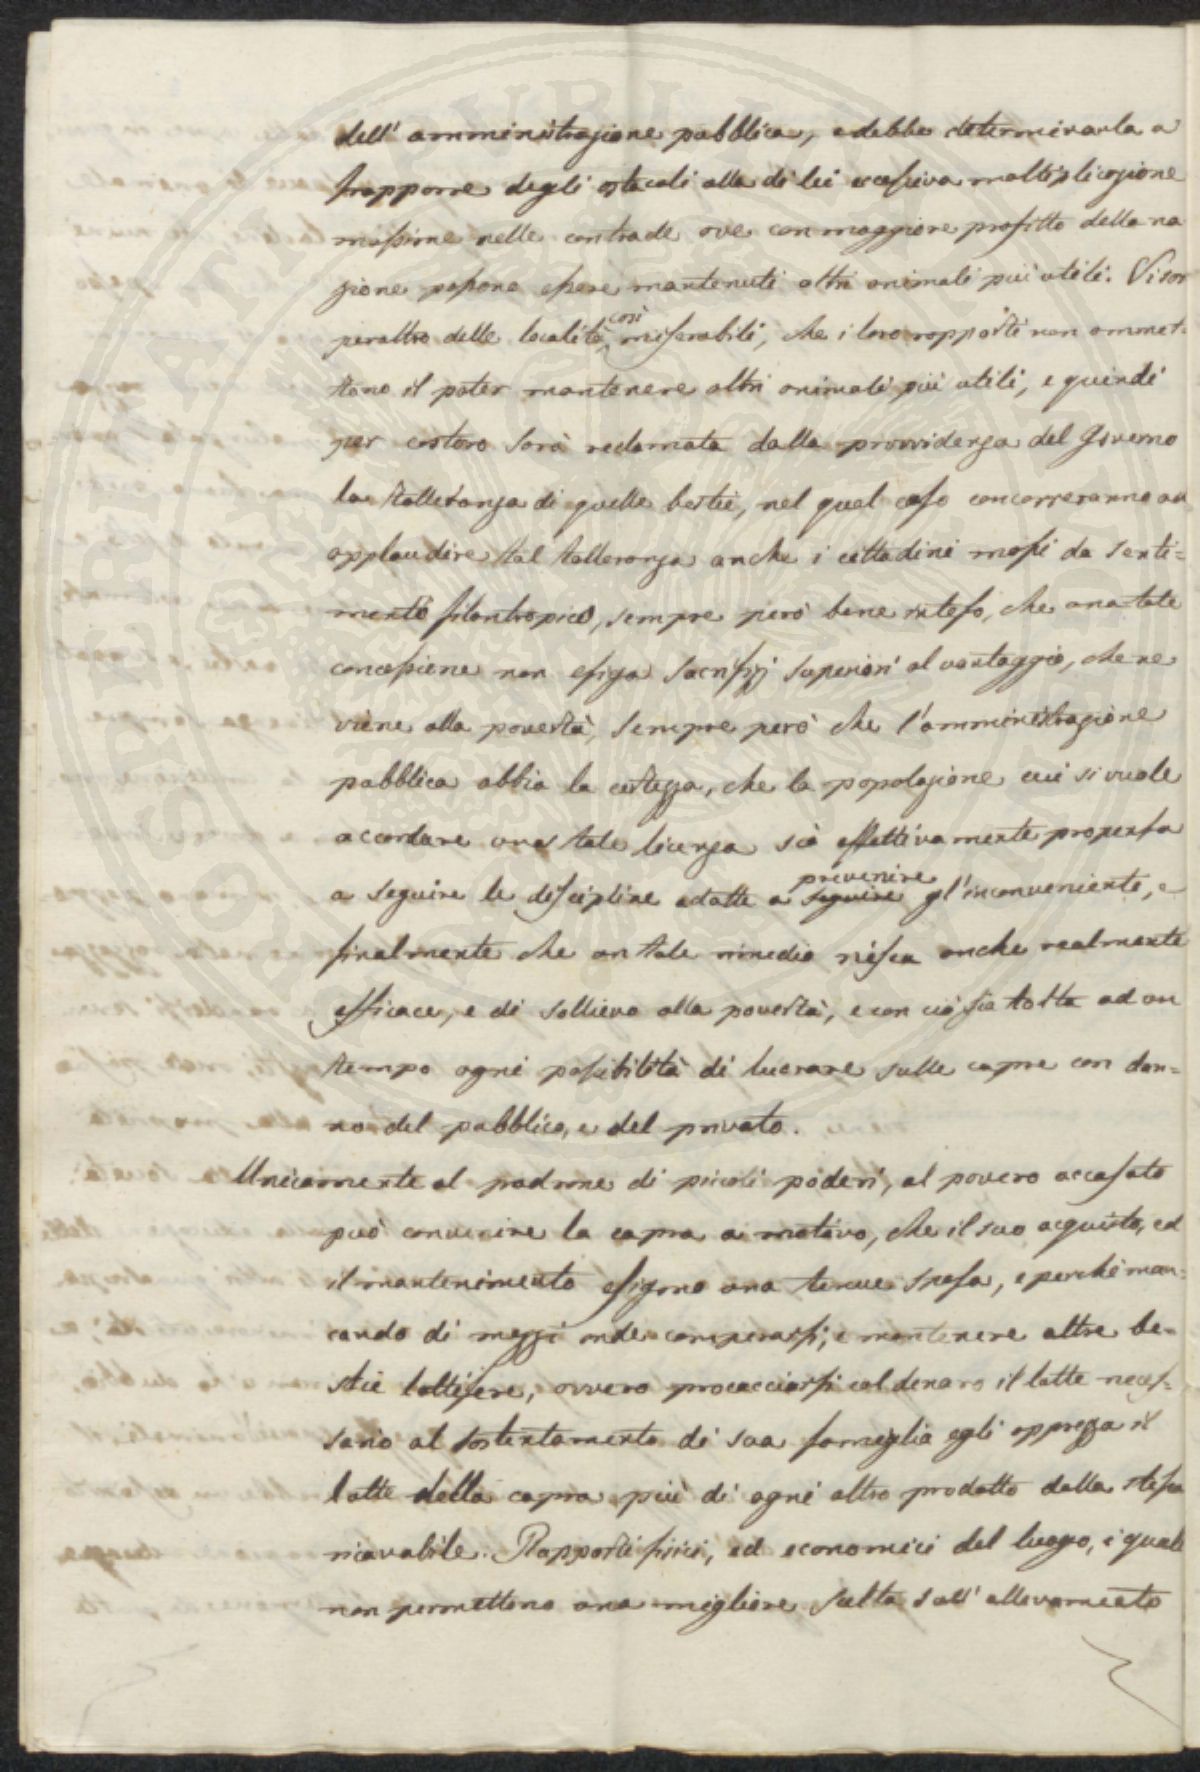 dell' amministrazione pubblica, e debbe determinarla a
frapporre degli ostacoli alla di lei eccessiva moltiplicazione
massime nelle contrade ove con maggiore profitto della na
zione possono essere mantenuti altri animali più utili. Vi son
peraltro delle località, così miserabili, che i loro rapporti non ammet-
tono il poter mantenere altri animali più utili, e quindi
per costoro sarà reclamata dalla provvidenza del Governo
la tolleranza di quelle bestie, nel qual caso concorreranno ad
applaudire tal tolleranza anche i cittadini mossi da senti=
mento filantropico, sempre però bene inteso, che una tale
concessione non esiga sacrifizj superiori al vantaggio, che ne
viene alla povertà, sempre però che l'amministrazione
pubblica abbia la certezza, che la popolazione cui si vuole
accordare una tale licenza sia effettivamente propensa
a seguire le discipline adatte a seguire prevenire gl'inconvenienti, e
finalmente che un tale rimedio riesca anche realmente
efficace, e di sollievo alla povertà, e con ciò sia tolta ad un
tempo ogni possibilità di lucrare sulle capre con dan=
no del pubblico, e del privato.
Unicamente al padrone di piccoli poderi, al povero accasato
può convenire la capra a motivo, che il suo acquisto, ed
il mantenimento esigono una tenue spesa, e perchè man=
cando di mezzi onde comperarsi, e mantenere altre be=
stie lattifere, ovvero procacciarsi col denaro il latte neces=
sario al sostentamento di sua famiglia egli apprezza il
latte della capra più di ogni altro prodotto dalla stessa
ricavabile. Rapporti fisici, ed economici del luogo, i quali
non permettono una migliore scelta sull' allevamento
SPERIMENTATI PUBLICI